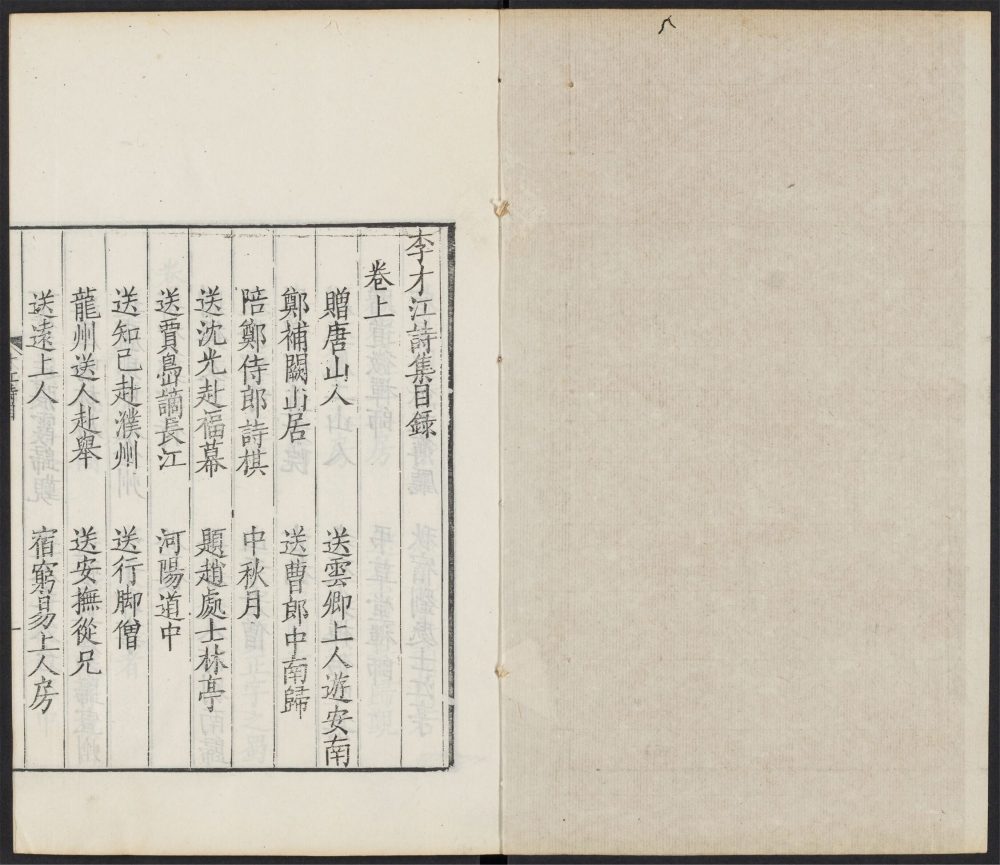 李才江詩集目錄
卷上
贈唐山人 送雲卿上人遊安南
鄭補闕山居 送曹郎中南歸
陪鄭侍郎詩棋 中秋月
送沈光赴福幕 題趙處士林亭
送賈島謫長江 河陽道中
送知己赴濮州 送行脚僧
龍州送人赴舉 送安撫從兄
送遠上人 宿窮易上人房